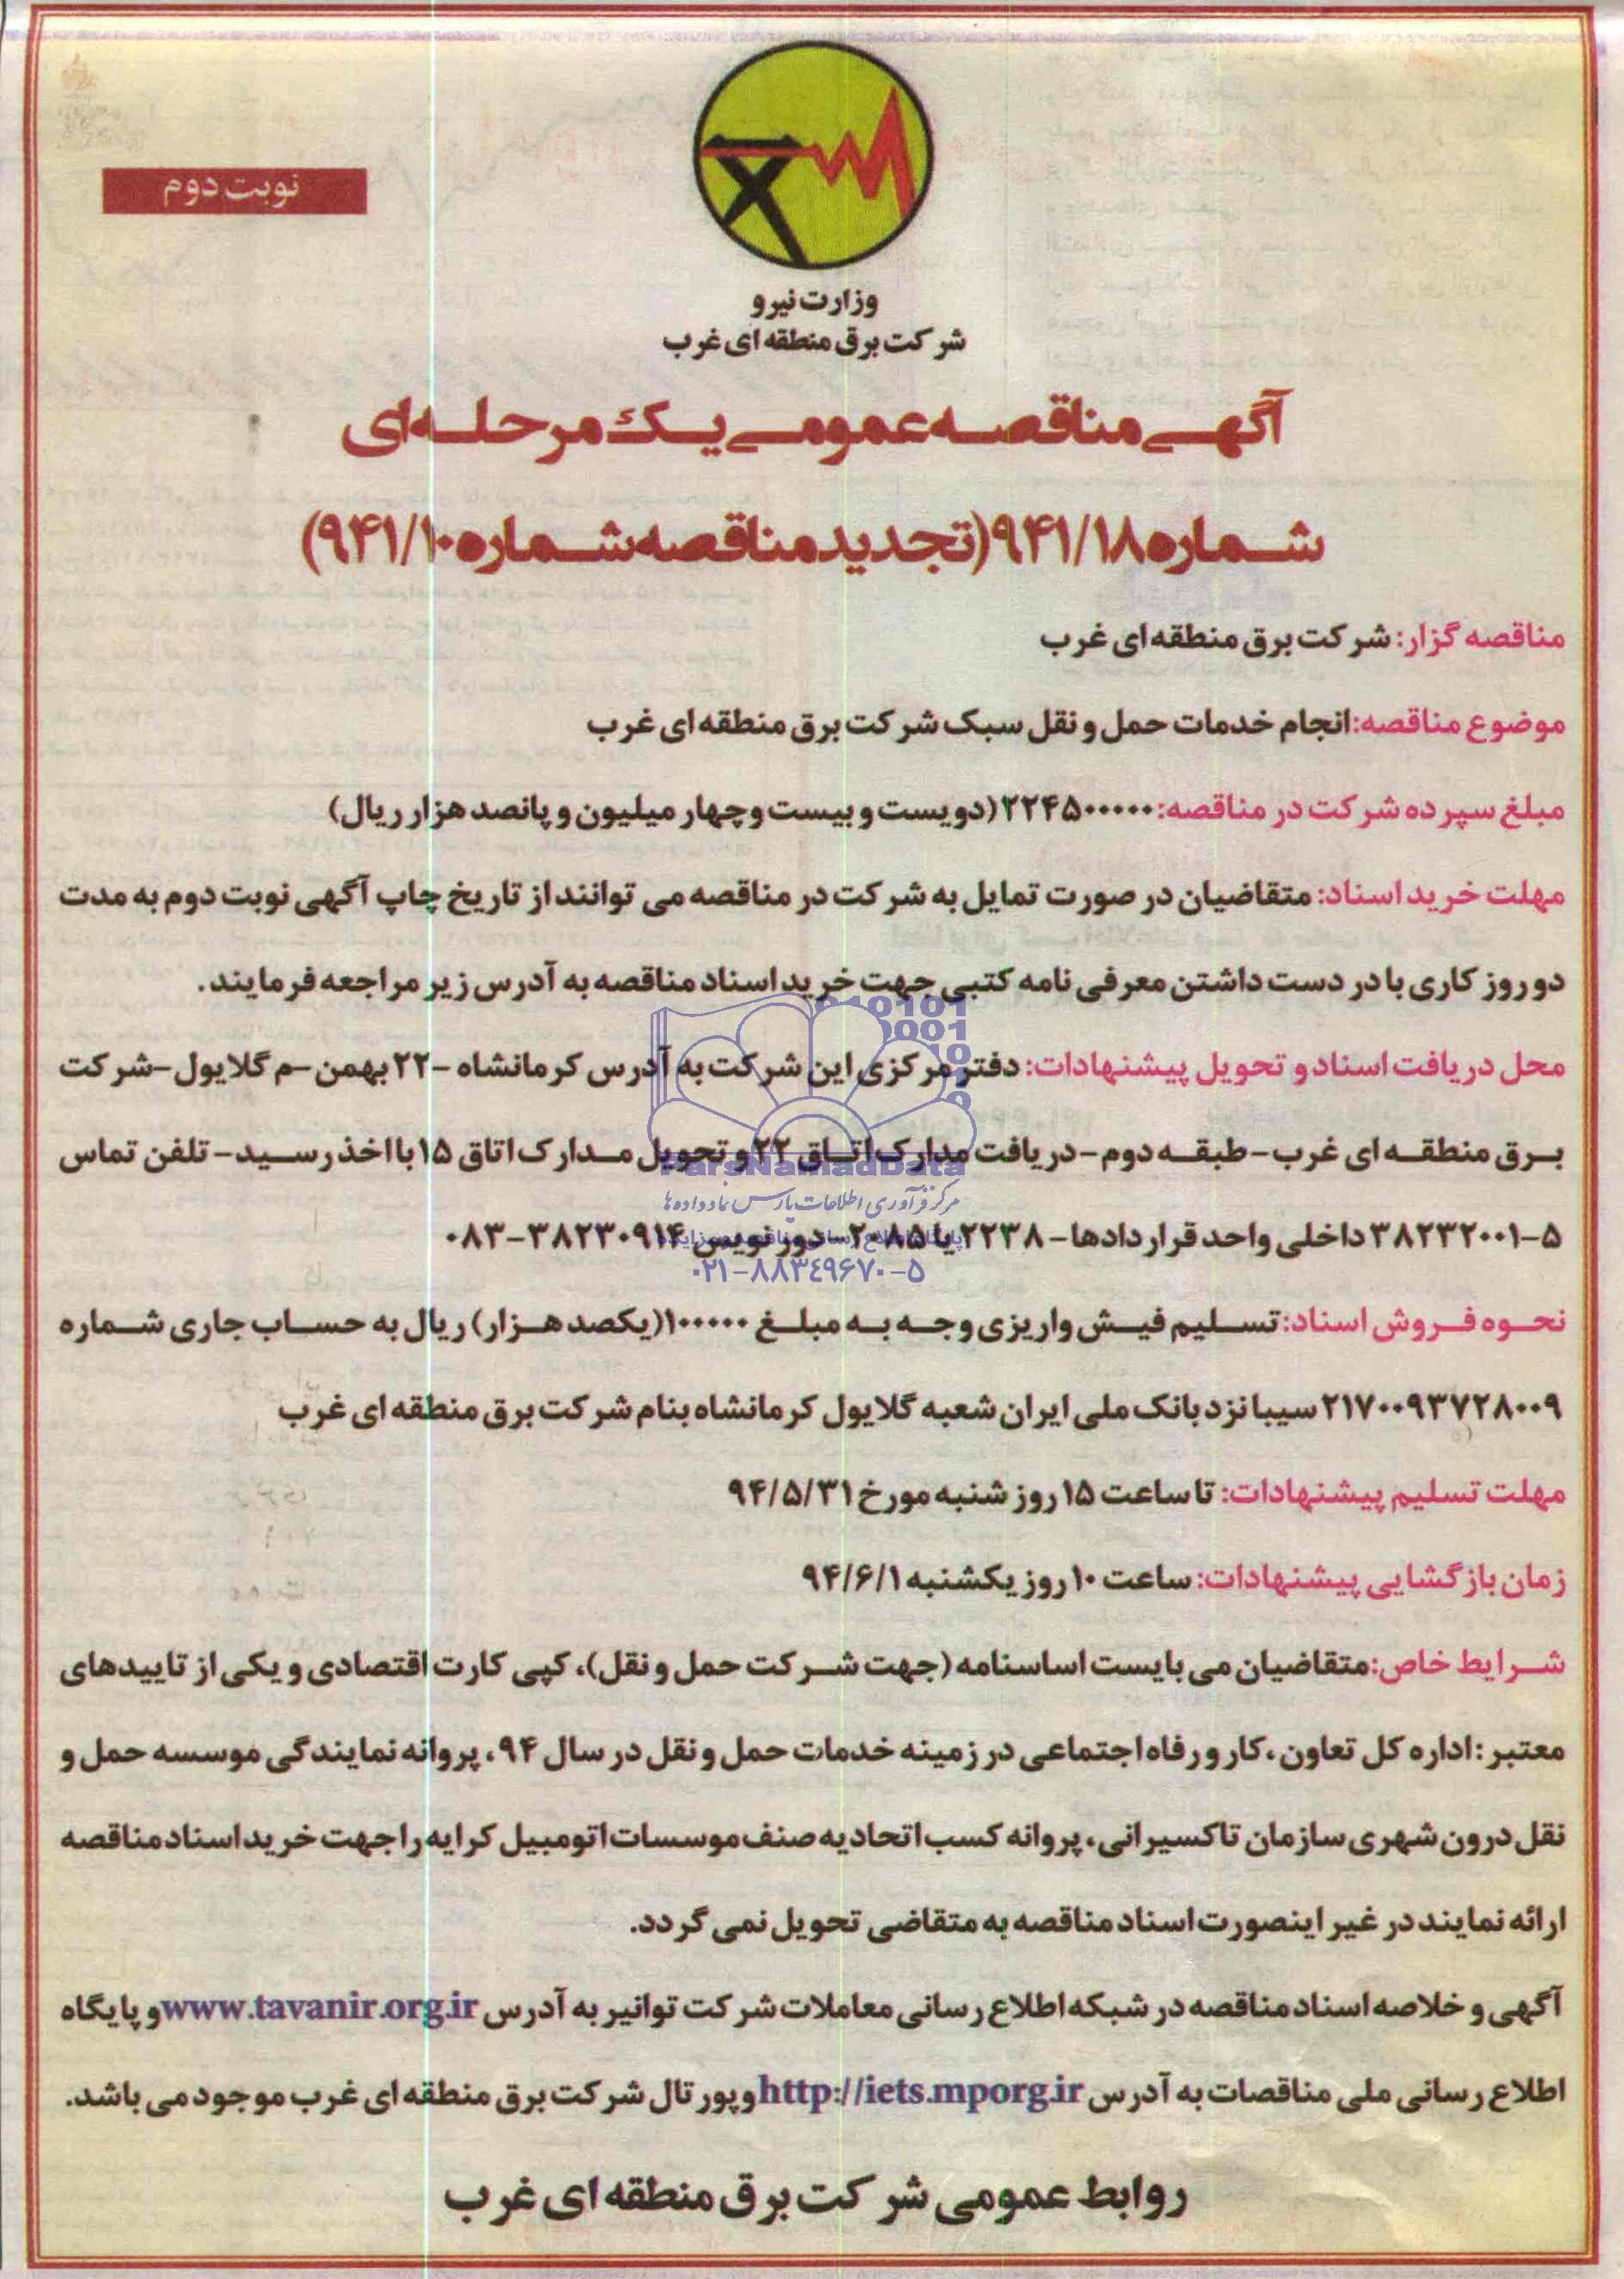 نوبت دوم
وزارت نیرو
شرکت برق منطقه ای غرب
آگهی مناقصه عمومی یک مرحله ای
شماره ۹۴۱/۱۸(تجدید مناقصه شماره ۹۴۱/۱۰)
مناقصه گزار: شرکت برق منطقه ای غرب
موضوع مناقصه:انجام خدمات حمل و نقل سبک شرکت برق منطقه ای غرب
مبلغ سپرده شرکت در مناقصه: ۲۲۴۵۰۰۰۰۰ (دویست و بیست و چهار میلیون و پانصد هزار ریال)
مهلت خرید اسناد: متقاضیان در صورت تمایل به شرکت در مناقصه می توانند از تاریخ چاپ آگهی نوبت دوم به مدت
دو روز کاری با در دست داشتن معرفی نامه کتبی جهت خرید اسناد مناقصه به آدرس زیر مراجعه فرمایند.
محل دریافت اسناد و تحویل پیشنهادات: دفتر مرکزی این شرکت به آدرس کرمانشاه -۲۲ بهمن -م گلایول-شرکت
برق منطقه ای غرب- طبقه دوم- دریافت مدارک اتاق ۲۲ و تحویل مدارک اتاق ۱۵ با اخذ رسید- تلفن تماس
۳۸۲۳۲۰۰۱-۵ داخلی واحد قراردادها- ۲۲۳۸ یا ۲۰۸۵- دورنویس ۳۸۲۳۰۹۱۴-۰۸۳
نحوه فروش اسناد: تسلیم فیش واریزی وجه به مبلغ ۱۰۰۰۰۰(یکصد هزار) ریال به حساب جاری شماره
۲۱۷۰۰۹۳۷۲۸۰۰۹ سیبا نزد بانک ملی ایران شعبه گلایول کرمانشاه بنام شرکت برق منطقه ای غرب
مهلت تسلیم پیشنهادات: تا ساعت ۱۵ روز شنبه مورخ ۹۴/۵/۳۱
زمان بازگشایی پیشنهادات: ساعت ۱۰ روز یکشنبه ۹۴/۶/۱
شرایط خاص:متقاضیان می بایست اساسنامه (جهت شرکت حمل و نقل)، کپی کارت اقتصادی و یکی از تاییدهای
معتبر: اداره کل تعاون ،کار و رفاه اجتماعی در زمینه خدمات حمل و نقل در سال ۹۴، پروانه نمایندگی موسسه حمل و
نقل درون شهری سازمان تاکسیرانی، پروانه کسب اتحادیه صنف موسسات اتومبیل کرایه را جهت خرید اسناد مناقصه
ارائه نمایند در غیر اینصورت اسناد مناقصه به متقاضی تحویل نمی گردد.
آگهی و خلاصه اسناد مناقصه در شبکه اطلاع رسانی معاملات شرکت توانیر به آدرس www.tavanir.org.ir و پایگاه
اطلاع رسانی ملی مناقصات به آدرس http://iets.mporg.ir و پورتال شرکت برق منطقه ای غرب موجود می باشد.
روابط عمومی شرکت برق منطقه ای غرب
ParsNamadData
مرکز فرآوری اطلاعات پارس نماد داده ها
۰۲۱-۸۸۳۴۹۶۷۰-۵